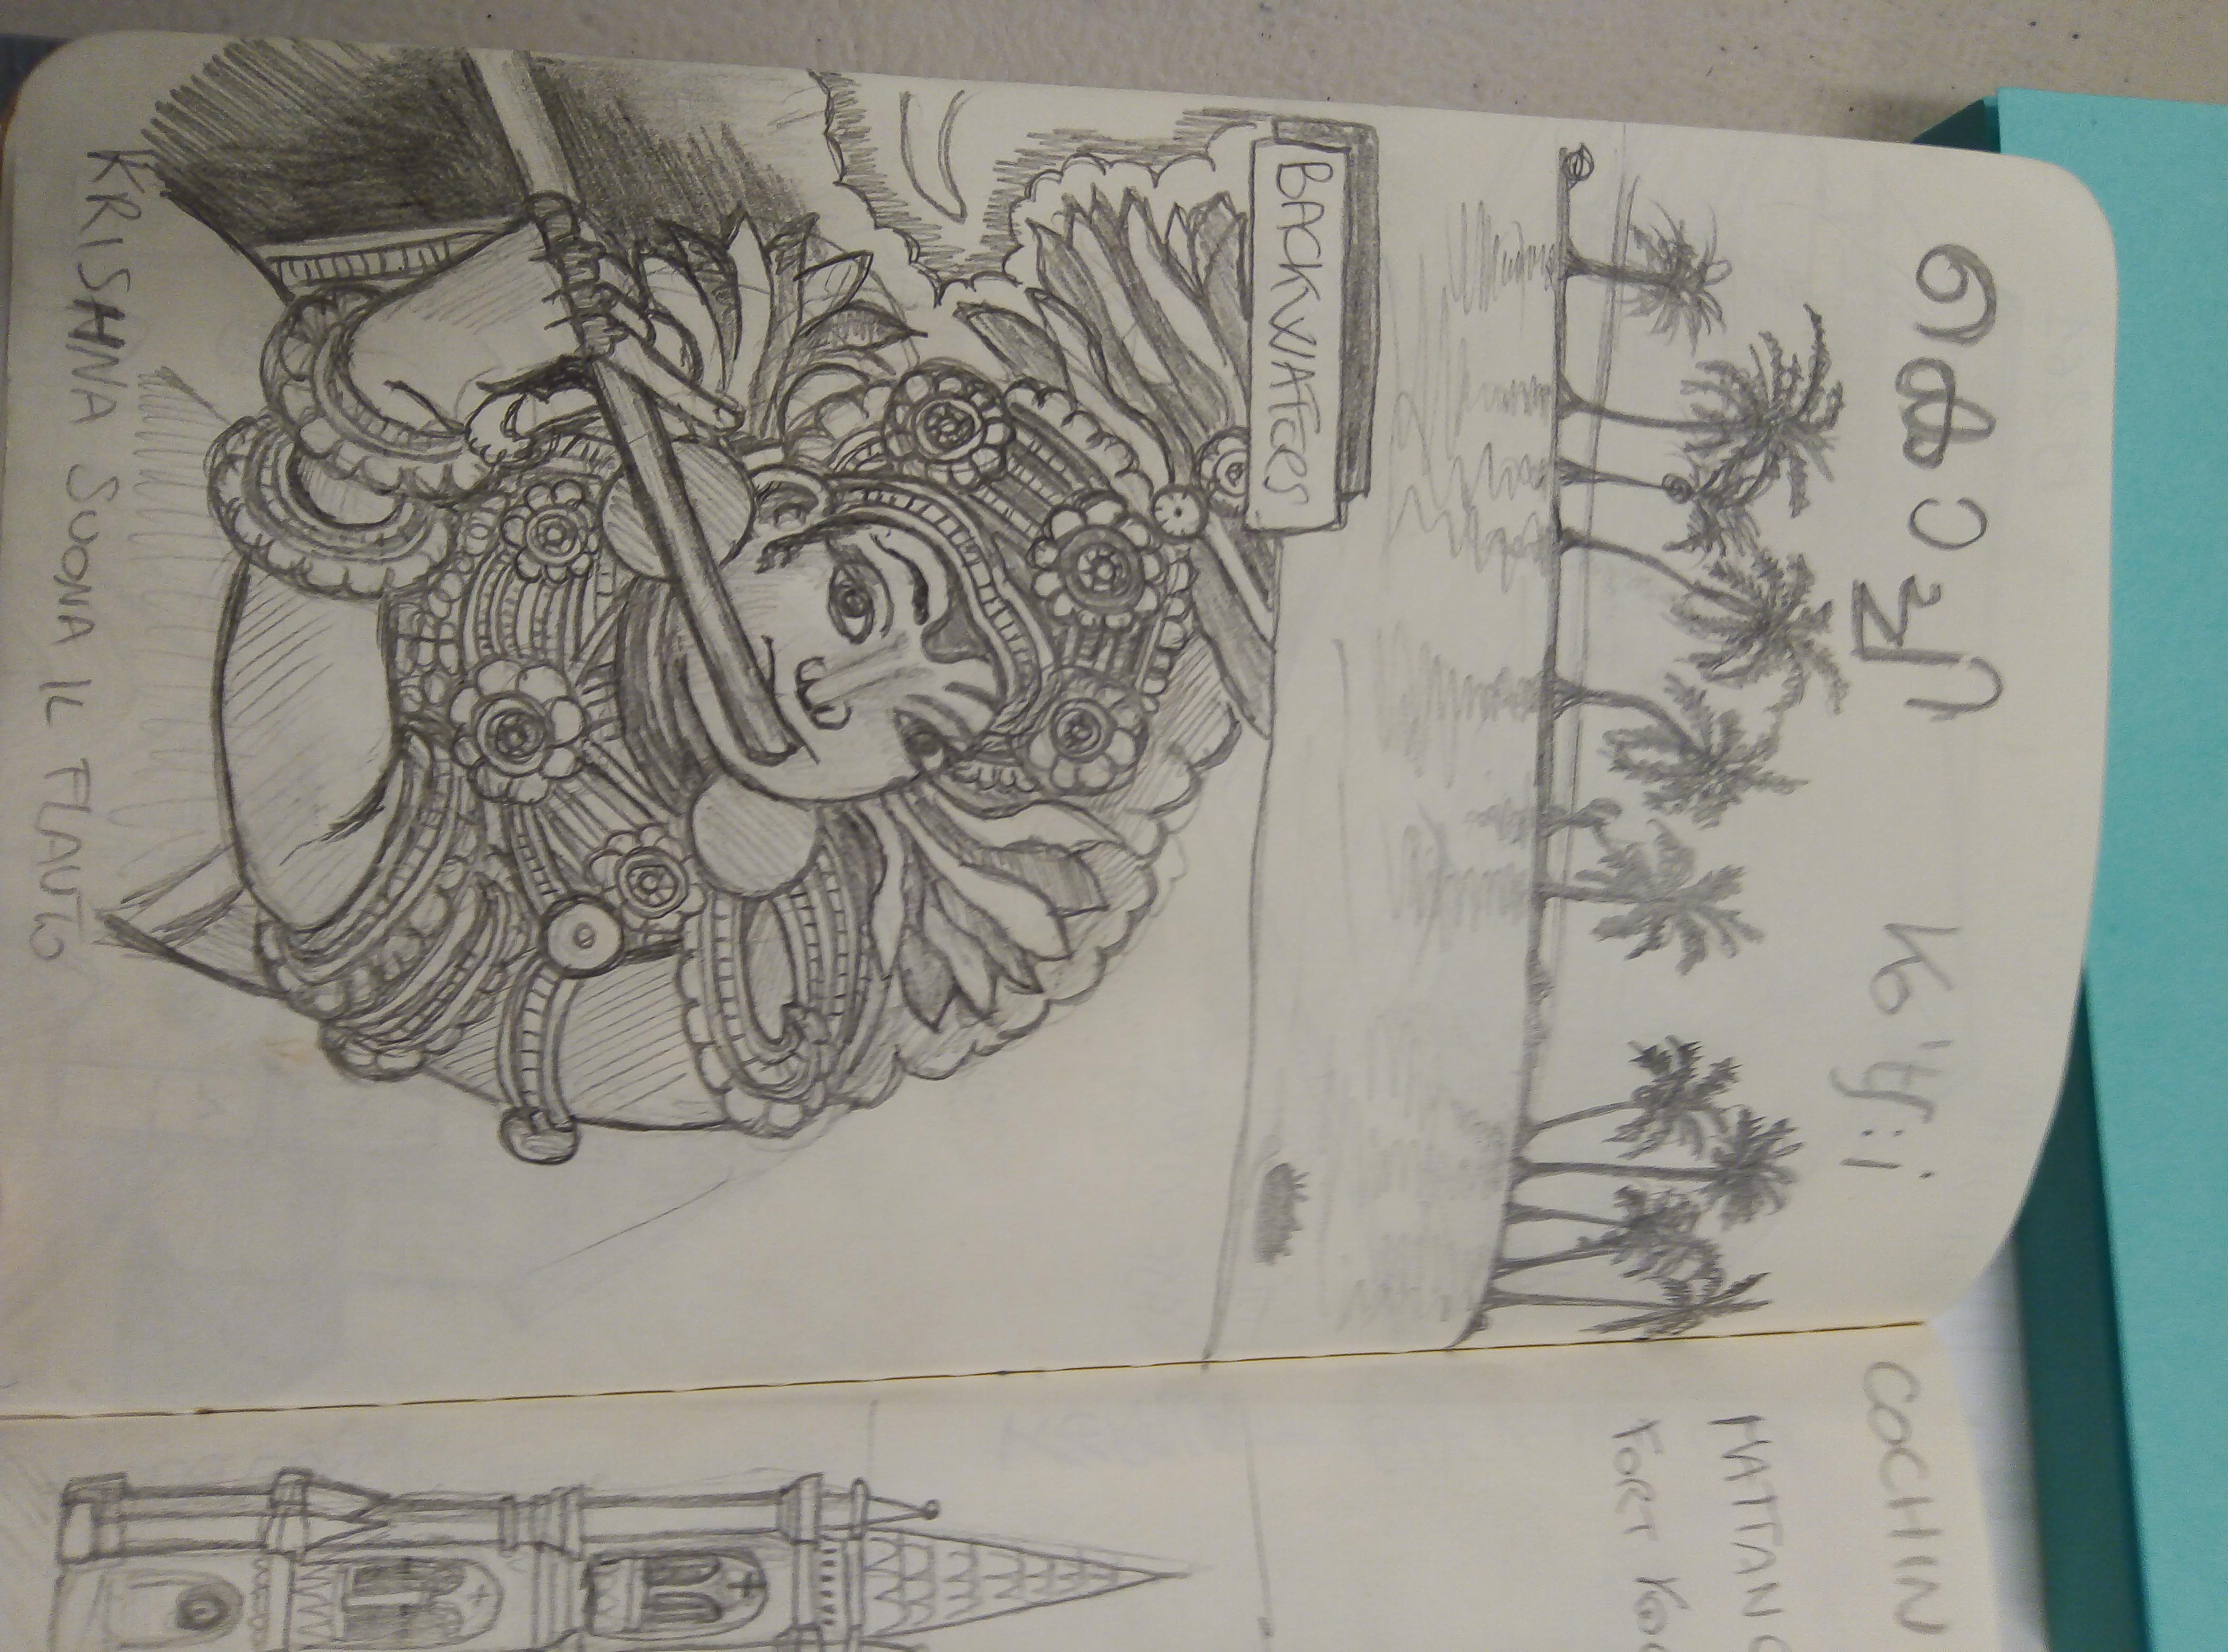 കൊച്ചി Ko'ʧːi
BACKWATERS
KRISHNA SUONA IL FLAUTO
COCHIN
MATTANC
FORT KOC